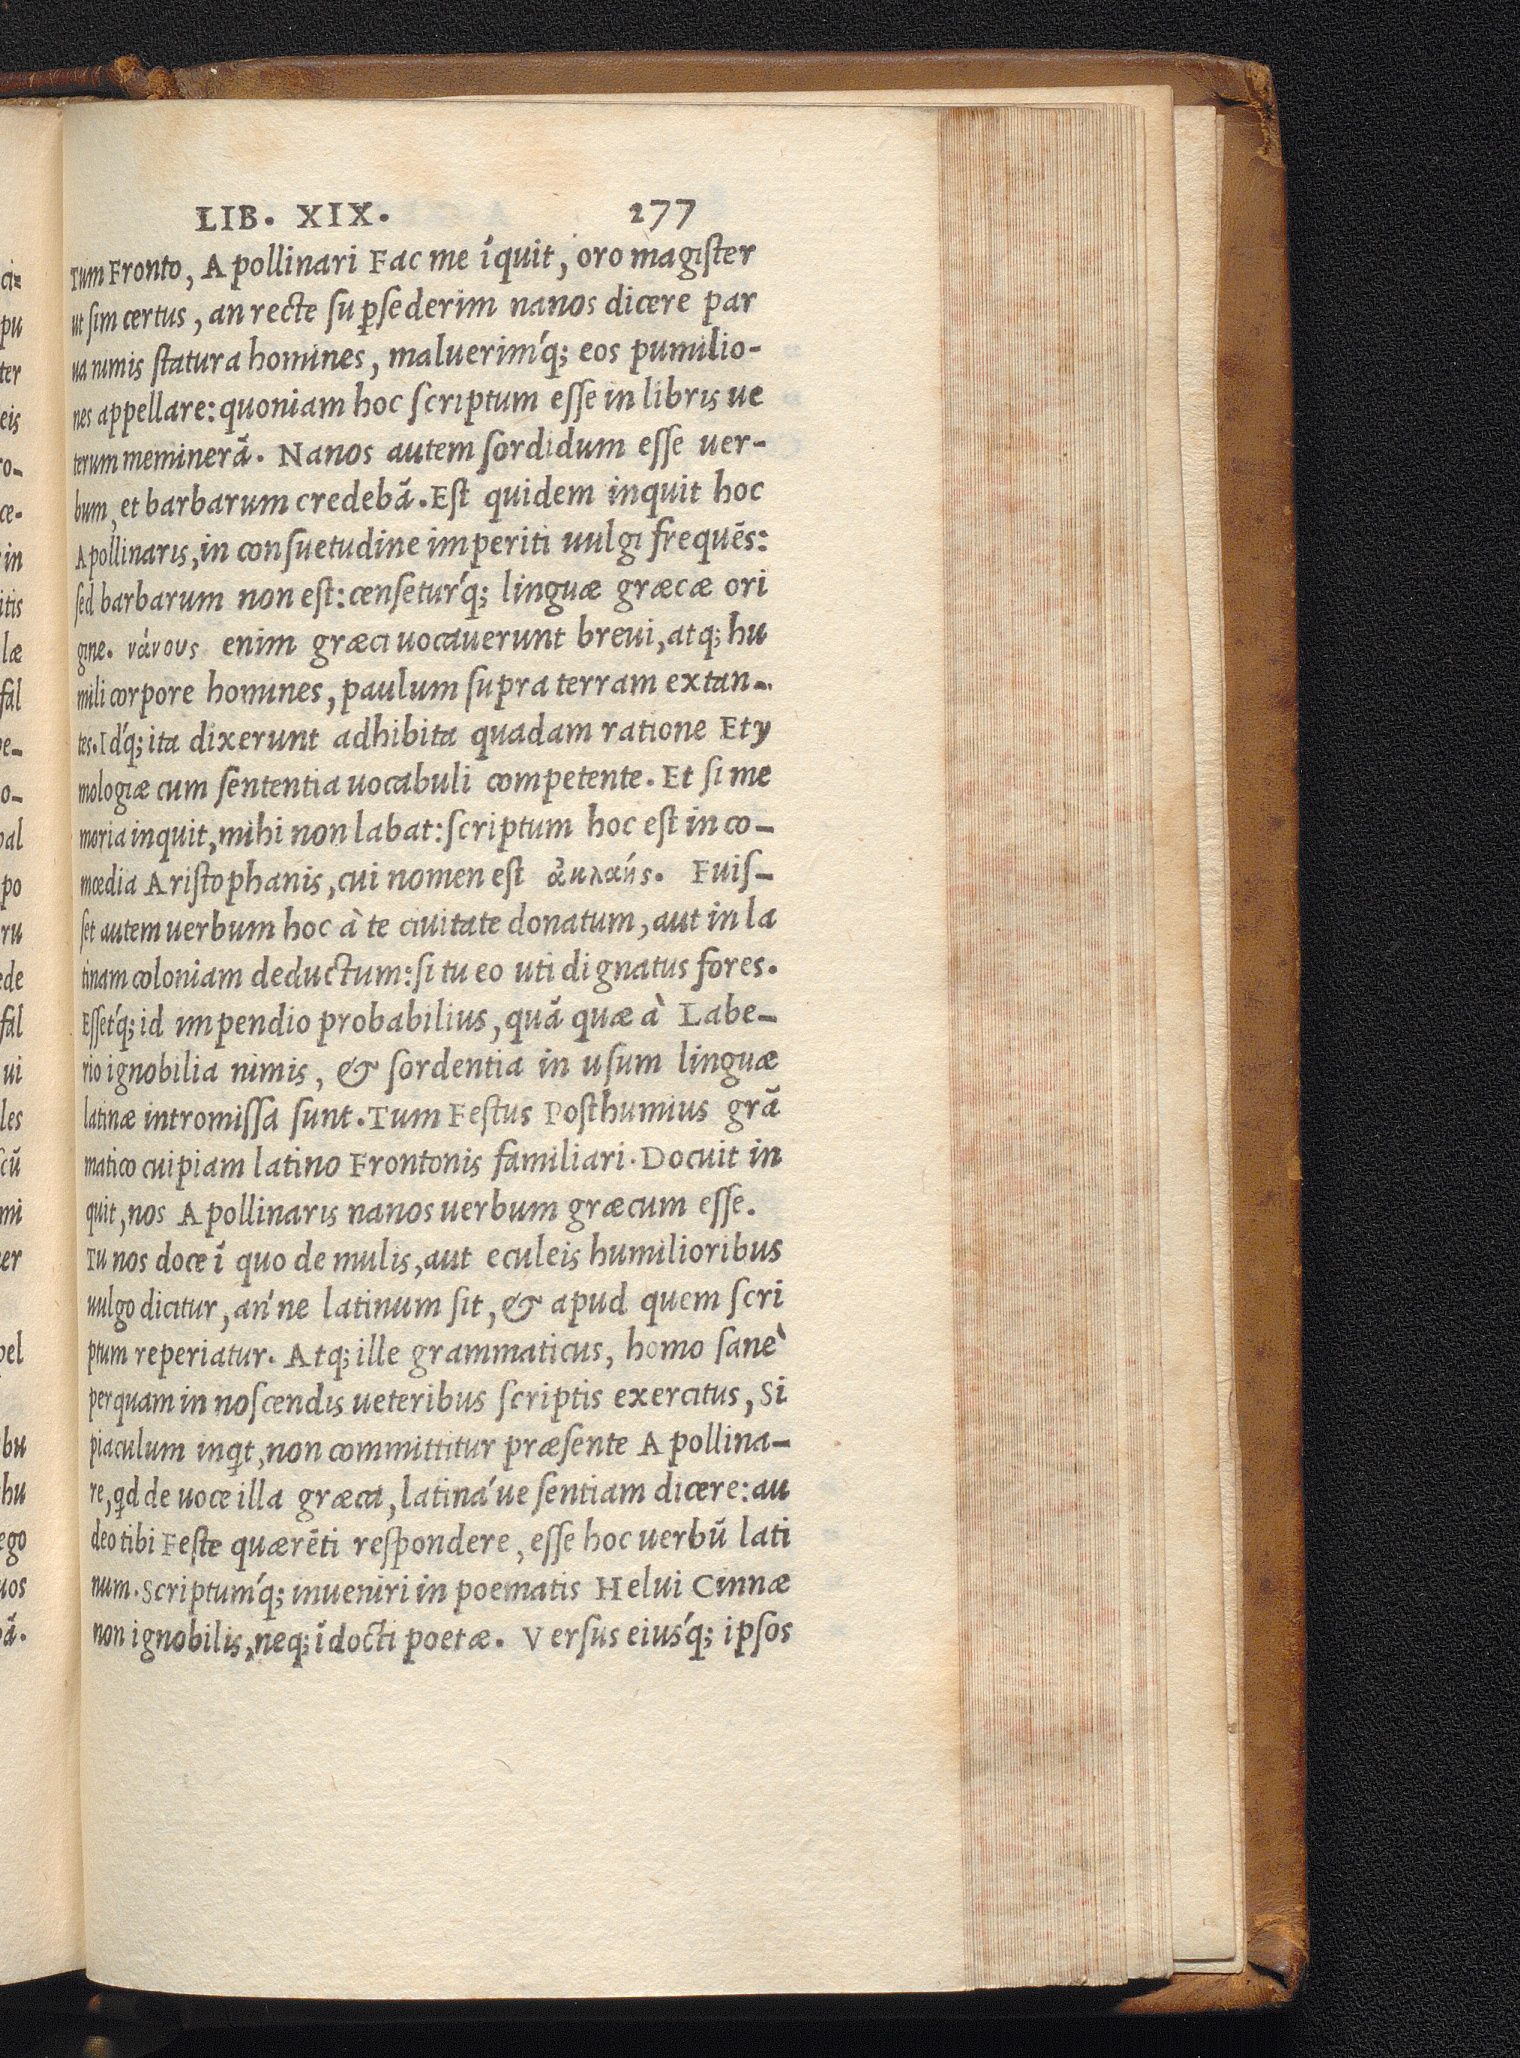 LIB. XIX. 277
Tum Fronto, Apollinari Fac me ĩquit, oro magister
ut sim certus, an recte sup̱sederim nanos dicere par
ua nimis statura homines, maluerim'q; eos pumilio-
nes appellare: quoniam hoc scriptum esse in libris ue
terum meminerã. Nanos autem sordidum esse uer-
bum, et barbarum credebã. Est quidem inquit hoc
Apollinaris, in consuetudine imperiti uulgi frequẽs:
sed barbarum non est: censetur'q; linguæ græcæ ori
gine. νάνους enim græci uocauerunt breui, atq; hu
mili corpore homines, paulum supra terram extan-
tes. Id'q; ita dixerunt adhibita quadam ratione Ety
mologiæ cum sententia uocabuli competente. Et si me
moria inquit, mihi non labat: scriptum hoc est in co-
mœdia Aristophanis, cui nomen est Fuis-
set autem uerbum hoc à te ciuitate donatum, aut in la
tinam coloniam deductum: si tu eo uti dignatus fores.
Esset'q; id impendio probabilius, quã quæ à Labe-
rio ignobilia nimis, & sordentia in usum linguæ
latinæ intromissa sunt. Tum Festus Posthumius grã
matico cuipiam latino Frontonis familiari. Docuit in
quit, nos Apollinaris nanos uerbum græcum esse.
Tu nos doce ĩ quo de mulis, aut eculeis humilioribus
uulgo dicitur, an'ne latinum sit, & apud quem scri
ptum reperiatur. Atq; ille grammaticus, homo sanè
perquam in noscendis ueteribus scriptis exercitus, Si
piaculum inq̇t, non committitur præsente Apollina-
re, q̇d de uoce illa græca, latina'ue sentiam dicere: au
deo tibi Feste quærẽti respondere, esse hoc uerbũ lati
num. Scriptum'q; inueniri in poematis Helui Cinnæ
non ignobilis, neq; ĩdocti poetæ. Versus eius'q; ipsos